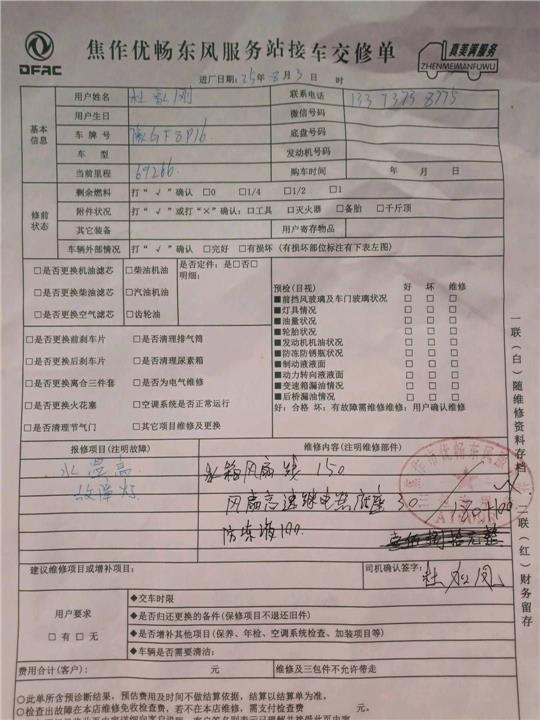 DFAC
焦作优畅东风服务站接车交修单
真美满服务
ZHENMEIMANFUWU
进厂日期：25年8月3日 时
基本信息
用户姓名
联系电话
用户生日 微信号码
车牌号 底盘号码
车型 发动机号码
当前里程 69266 购车时间 年 月 日
修前状态
剩余燃料 打“√”确认 □0 □1/4 □1/2 □1
附件状况 打“√”或打“×”确认：□工具 □灭火器 □备胎 □千斤顶
其它装备 用户寄存物品
车辆外部情况 打“√”确认 □完好 □有损坏（有损坏部位标注有下表左图）
□是否更换机油滤芯 □柴油机油 是否定件：是□否□
□是否更换柴油滤芯 □汽油机油 明细：
□是否更换空气滤芯 □齿轮油
□是否更换前刹车片 □是否清理排气筒
□是否更换后刹车片 □是否清理尿素箱
□是否更换离合三件套 □是否为电气维修
□是否更换火花塞 □空调系统是否正常运行
□是否清理节气门 □其它项目维修及更换
预检（目视） 好 坏 维修
■前挡风玻璃及车门玻璃状况 □ □ □
■灯具情况 □ □ □
■油量状况 □ □ □
■轮胎状况 □ □ □
■发动机机油状况 □ □ □
■防冻防锈瓶状况 □ □ □
■制动液液面 □ □ □
■动力转向液液面 □ □ □
■变速箱漏油情况 □ □ □
■后桥漏油情况 □ □ □
好：合格 坏：有故障需维修维修：用户确认维修
报修项目（注明故障） 维修内容（注明维修部件）
水温高
故障灯
水箱风扇线 150
风扇高速继电器底座 30
180+100
防冻液100
建议维修项目或增补项目：
司机确认签字：
用户要求
□有 □无
◆交车时限
◆是否归还更换的备件（保修项目不退还旧件）
◆是否增补其他项目（保养、年检、空调系统检查、加装项目等）
◆车辆是否需要清洁：
费用合计（客户）： 元 维修及三包件不允许带走
◇此单所含预诊断结果，预估费用及时间不做结算依据，结算以结算单为准。
◇检查出故障在本店维修免收检查费，若不在本店维修，需支付检查费 元。
一联（白）随维修资料存档
二联（红）财务留存